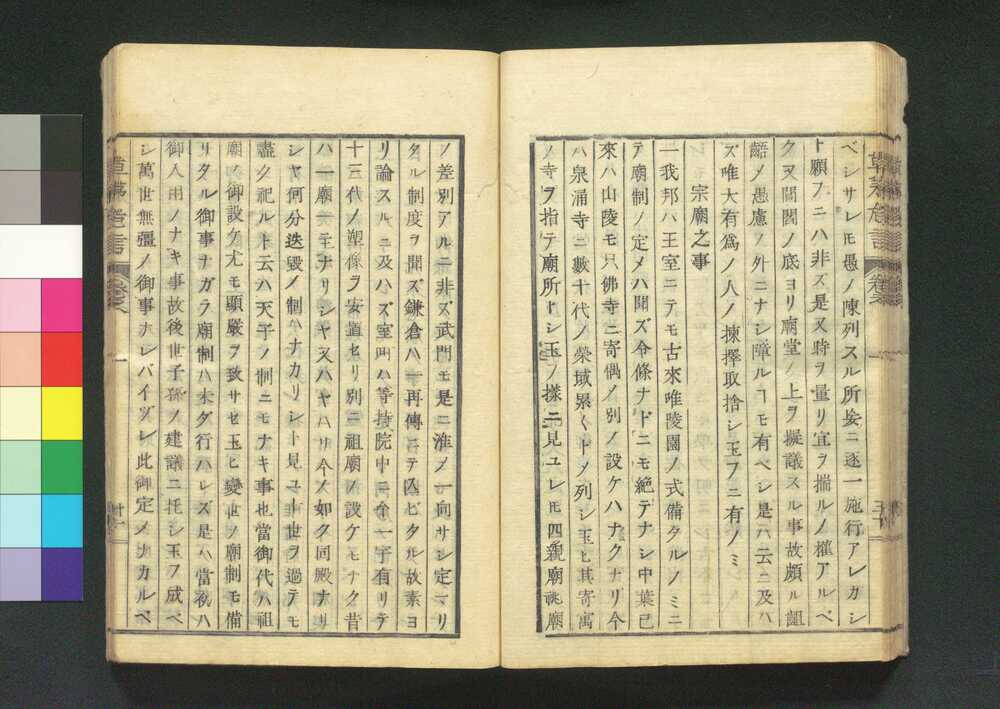 ベシサレ𪜈愚ノ陳列スル所妄ニ逐一施行アレカシ
ト願フニハ非ズ是又時ヲ量リ宜ヲ揣ルノ權アルベ
ク又閭閻ノ底ヨリ廟堂ノ上ヲ擬議スル事故頗ル齟
齬メ愚慮ノ外ニナシ障ルヿモ有ベシ是ハ云ニ及ハ
ズ唯大有爲ノ人ノ揀擇取捨シ玉フニ有ノミ
宗廟之事
一我邦ハ王室ニテモ古來唯陵園ノ式備タルノミニ
テ廟制ノ定メハ聞ズ令條ナドニモ絶テナシ中葉已
來ハ山陵モ只佛寺ニ寄偶ノ別ノ設ケハナクナリ今
ハ泉涌寺ニ數十代ノ塋域累〱トメ列シ玉ヒ其寄寓
ノ寺ヲ指テ廟所トシ玉ノ樣ニ見ユレ𪜈四親廟祧廟
ノ差別アルニ非ズ武門モ是ニ准メ一向サシ定マリ
タル制度ヲ聞ズ鎌倉ハ一再傳ニテ亾ビタル故素ヨ
リ論スルニ及ハズ室町ハ等持院中ニ令一字有リテ
十三代ノ塑像ヲ安置セリ別ニ祖廟ノ設ケモナク昔
ハ一廟一主ナリシヤ又ハヤハリ今ノ如ク同殿ナリ
シヤ何分迭毀ノ制ハナカリシト見ユ十世ヲ過テモ
盡ク祀ルト云ハ天子ノ制ニモナキ事也當御代ハ祖
廟ノ御設ケ尤モ顯嚴ヲ致サセ玉ヒ變世ノ廟制モ備
リタル御事ナガラ廟制ハ未ダ行ハレズ是ハ當祝ハ
御入用ノナキ事故後世子孫ノ建議ニ托シ玉フ成ベ
シ萬世無彊ノ御事ナレバイヅレ此御定メナカルベ
草茅危言